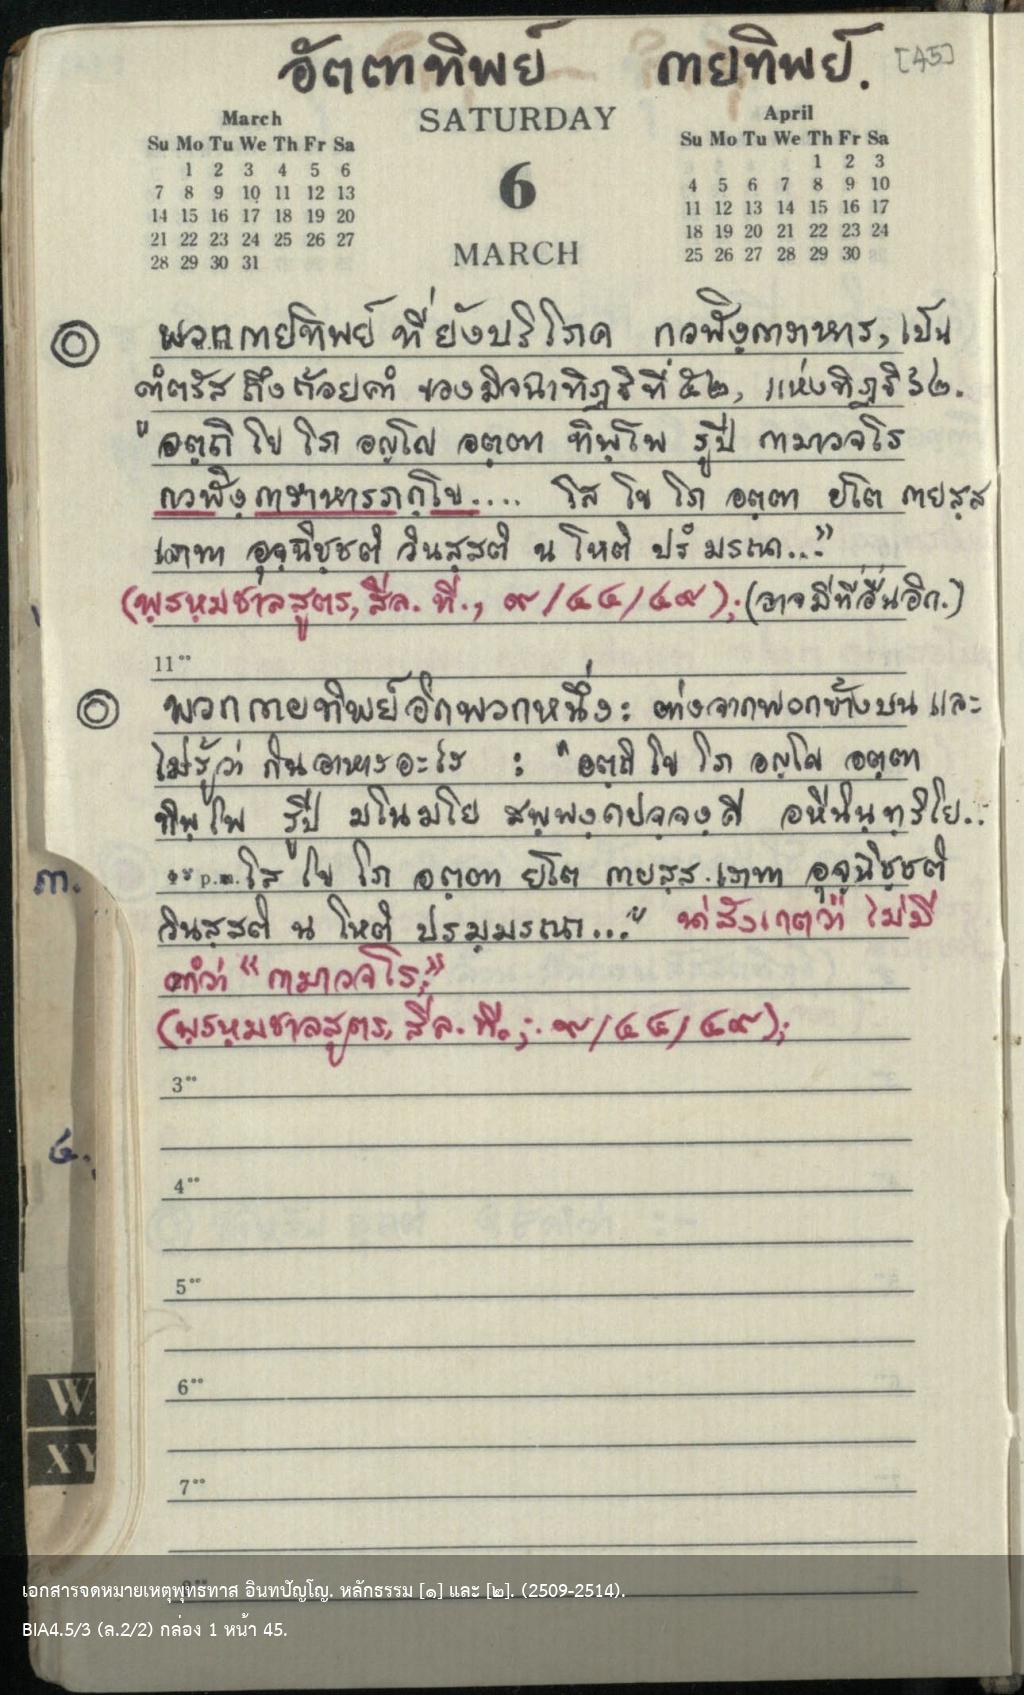 อัตตาทิพย์ กายทิพย์. [45]
March SATURDAY April
Su Mo Tu We Th Fr Sa 6 Su Mo Tu We Th Fr Sa
1 2 3 4 5 6 1 2 3
7 8 9 10 11 12 13 4 5 6 7 8 9 10
14 15 16 17 18 19 20 11 12 13 14 15 16 17
21 22 23 24 25 26 27 18 19 20 21 22 23 24
28 29 30 31 MARCH 25 26 27 28 29 30
พวกกายทิพย์ ที่ยังบริโภค กวฬิงฺการาหาร, เป็น
คำตรัส ถึงถ้อยคำ ของมิจฉาทิฏฐิที่ ๕๒, แห่งทิฏฐิ ๖๒.
"อตฺถิ โข โภ อญฺโญ อตฺตา ทิพฺโพ รูปี กามาวจโร
กวฬิงฺการาหารภกฺโข.... โส โข โภ อตฺตา ยโต กายสฺส
เภทา อุจฺฉิชฺชติ วินสฺสติ น โหติ ปรํ มรณา..."
(พฺรหฺมชาลสูตร, สีล. ที., ๙/๔๔/๔๙); (อาจมีที่อื่นอีก.)
11ºº
พวกกายทิพย์อีกพวกหนึ่ง: ต่างจากพวกข้างบน และ
ไม่รู้ว่า กินอาหารอะไร : "อตฺถิ โข โภ อญฺโญ อตฺตา
ทิพฺโพ รูปี มโนมโย สพฺพงฺคปจฺจงฺคี อหีนินฺทฺริโย..
p.m. โส โข โภ อตฺตา ยโต กายสฺส เภทา อุจฺฉิชฺชติ
วินสฺสติ น โหติ ปรมฺมรณา..." น่าสังเกตว่า ไม่มี
คำว่า "กามาวจโร;"
(พฺรหฺมชาลสูตร, สีล. ที.; ๙/๔๔/๔๙);
๓.
3ºº
๔.
4ºº
5ºº
6ºº
W
XY
7ºº
เอกสารจดหมายเหตุพุทธทาส อินทปัญโญ. หลักธรรม [๑] และ [๒]. (2509-2514).
BIA4.5/3 (ล.2/2) กล่อง 1 หน้า 45.